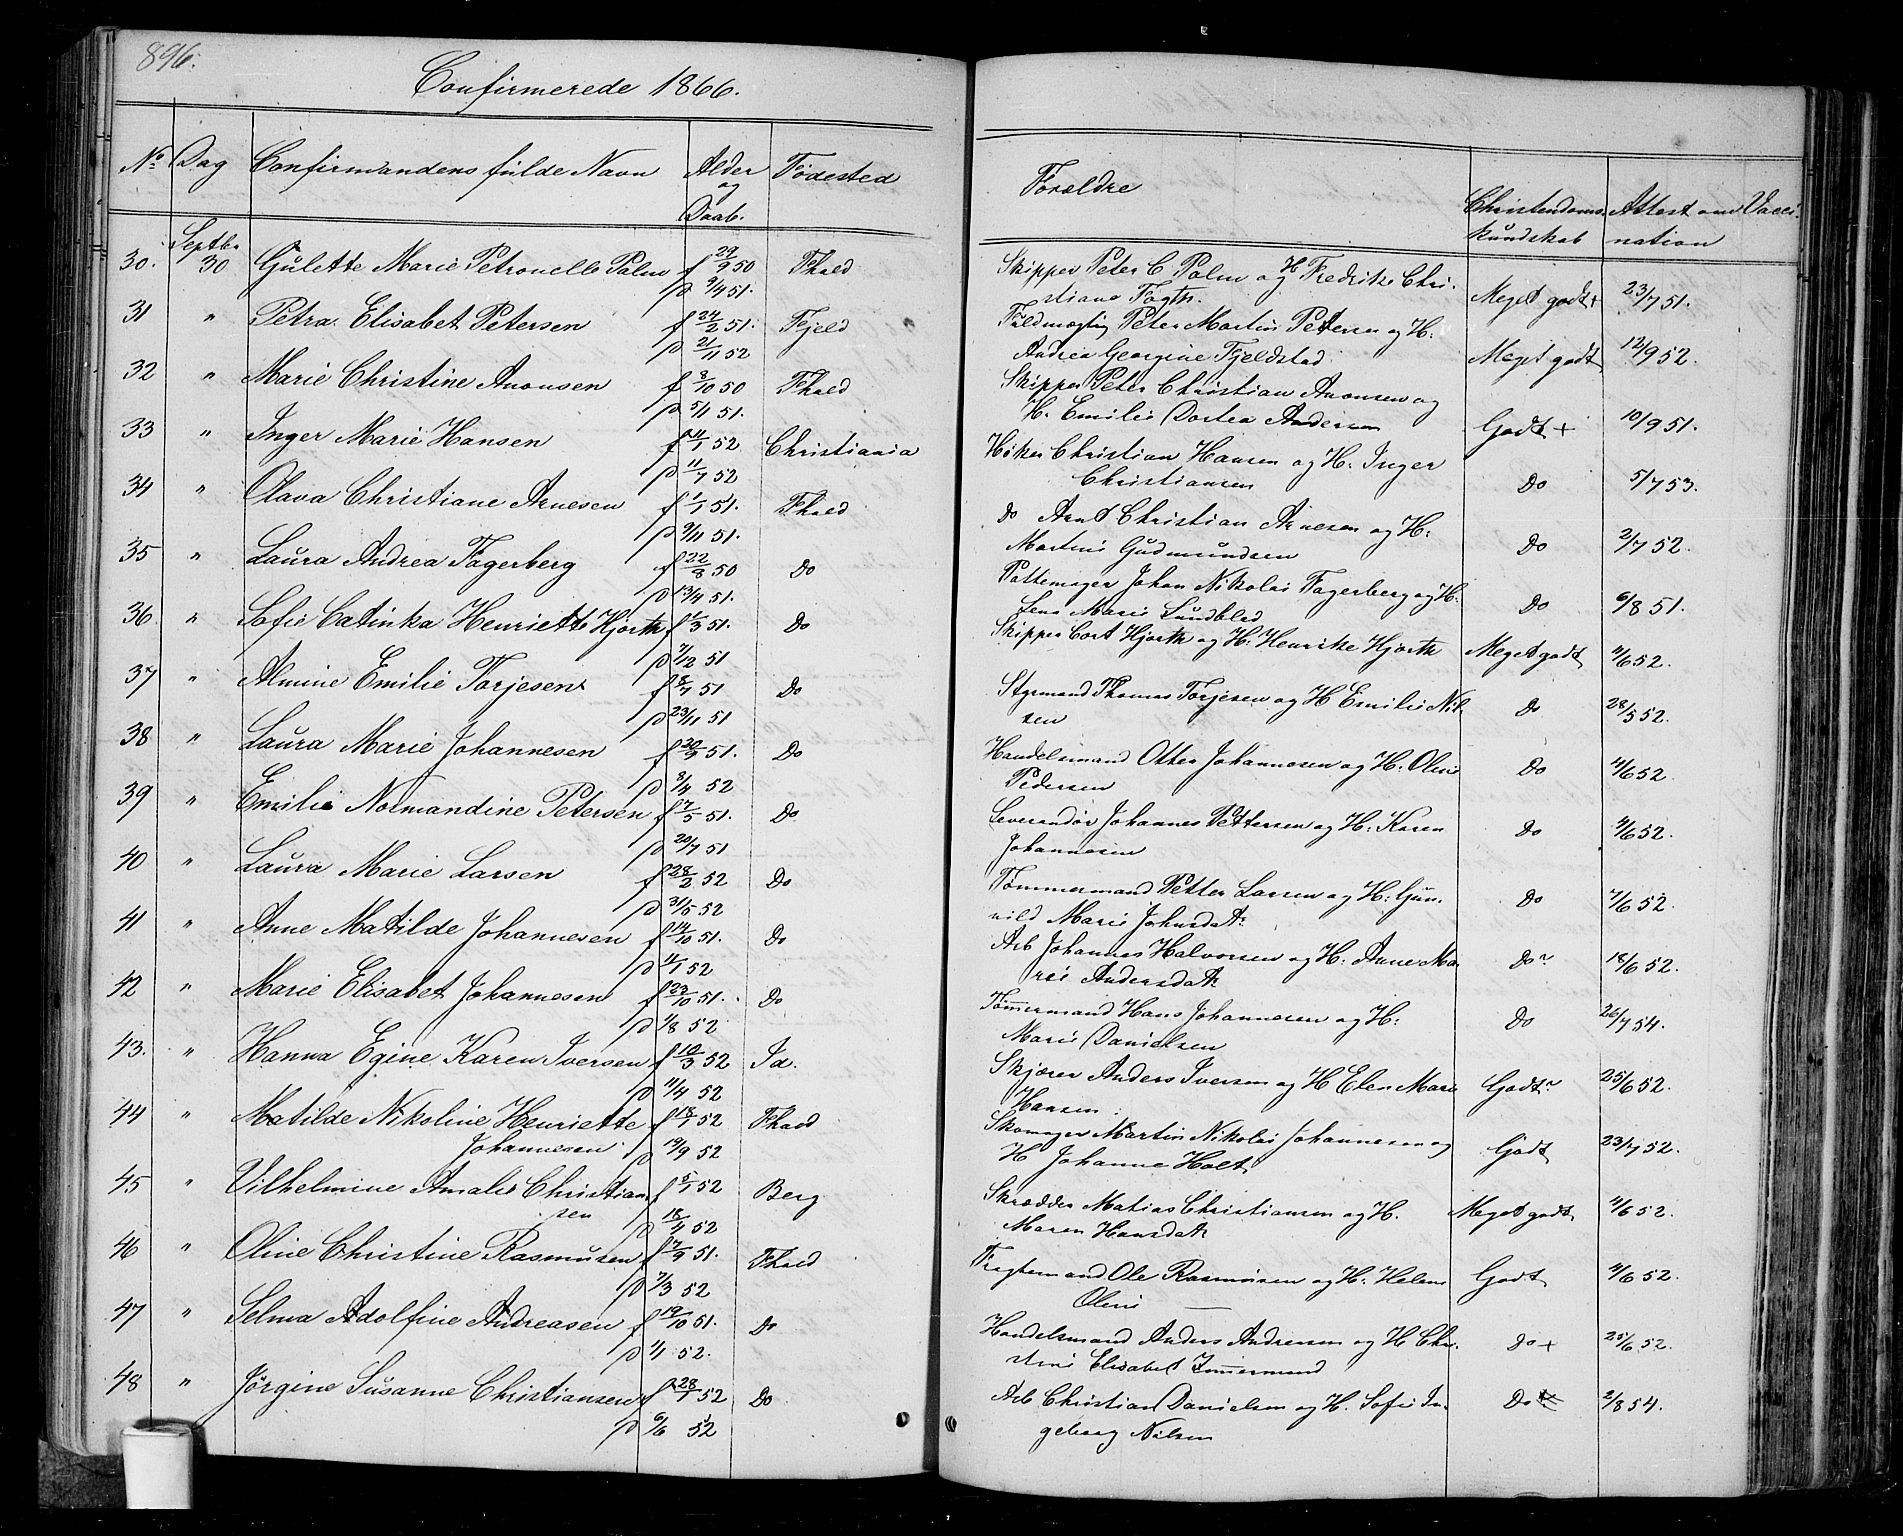 896.
Confirmerede 1866.
No Dag Confirmandens fulde Navn Alder og Daab. Fødested Forældre Christendoms- kundskab Attest om Vacci- nation
30. Septbr 30 Gulette Marie Petronelle Palm f 29/9 50 p 9/4 51. Fhald Skipper Peter C Palm og H Fredrikke Chri- stiane Fogth. Meget godt + 23/7 51.
31 " Petra Elisabet Petersen f 24/2 51. p 21/11 52 Fjeld Fuldmægtig Peter Martin Petersen og H. Andrea Georgine Fjeldstad Meget godt 12/9 52.
32 " Marie Christine Aronsen f 8/10 50 p 5/11 51. Fhald Skipper Peter Christian Aronsen og H. Emilie Dortea Andersen Godt + 10/9 51.
33 " Inger Marie Hansen f 11/1 52 p 11/7 52 Christiania Høker Christian Hansen og H. Inger Christiansen Do 5/7 53.
34 " Olava Christiane Arnesen f 1/1 51. p 9/11 51. Fhald Do Arnt Christian Arnesen og H. Martine Gudmundsen Do 2/7 52.
35 " Laura Andrea Fagerberg f 22/8 50 p 13/4 51. Do Pottemager Johan Nikolai Fagerberg og H. Lene Marie Sundblad Do 6/8 51.
36 " Sofie Catinka Henriette Hjorth f 1/3 51. p 7/12 51 Do Skipper Cort Hjorth og H. Henrikke Hjorth Meget godt 11/6 52.
37 " Almine Emilie Torjesen f 8/7 51 p 23/11 51 Do Styrmand Thomas Torjesen og H Emilie Nil- sen Do 28/5 52.
38 " Laura Marie Johannesen f 20/9 51. p 3/4 52 Do Handelsmand Otter Johannesen og H. Oline Pedersen Do 4/6 52
39 " Emilie Normandine Petersen f 7/5 51. p 20/7 51 Do Leverandør Johannes Pettersen og H. Karen Johannesen Do 4/6 52.
40 " Laura Marie Larsen f 28/2 52 p 31/5 52 Do Tømmermand Petter Larsen og H. Gun- nild Marie Johnsdatr Do 7/6 52.
41 " Anne Matilde Johannesen f 14/10 51. p 4/1 52 Do Arb Johannes Halvorsen og H. Anne Ma- rie Andersdatr Do 18/6 52.
42 " Marie Elisabet Johannesen f 23/10 51. p 1/8 52 Do Tømmermand Hans Johannesen og H. Marie Danielsen Do 26/7 54.
43. " Hanna Egine Karen Iversen f 10/3 52 p 11/4 52 Id. Skjærer Anders Iversen og H Elen Marie Hansen. Godt 25/6 52.
44 " Matilde Nikoline Henriette Johannesen f 18/1 52 p 19/9 52 Fhald Skomager Martin Nikolai Johannesen og H Johanne Holt Godt 23/7 52.
45 " Vilhelmine Amalie Christian- sen f 5/1 52 p 18/4 52 Berg Skrædder Matias Christiansen og H. Maren Hansdatr Meget godt 4/6 52.
46 " Oline Christine Rasmusen f 7/9 51. p 7/3 52 Fhald Fragtemand Ole Rasmusen og H. Helene Oline Godt 4/6 52.
47 " Selma Adolfine Andreasen f 19/10 51. p 1/1 52. Do Handelsmand Anders Andreasen og H Chri- stine Elisabet Immermand Do + 25/6 52.
48 " Jørgine Susanne Christiansen f 28/1 52 p 6/6 52 Do Arb Christian Danielsen og H. Sofie In- geborg Nilsen Do 2/8 54.